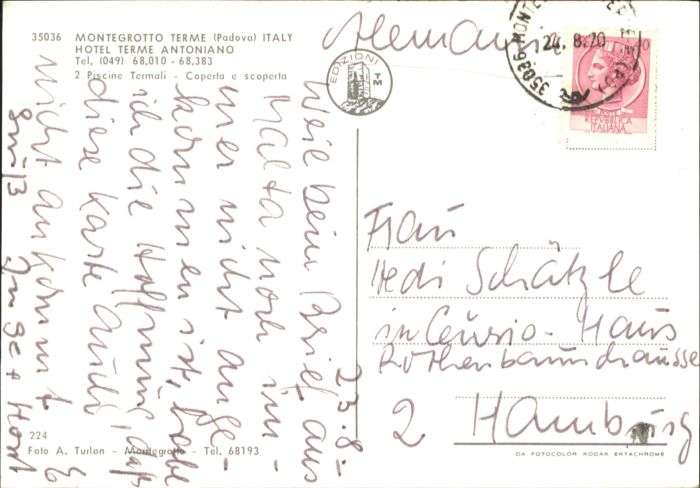 35036 MONTEGROTTO TERME (Padova) ITALY
HOTEL TERME ANTONIANO
Tel, (049) 68,010 - 68,383
2 Piscine Termali - Coperta e scoperta
EDIZIONI
TM
24. 8. 70
35036 MONTE
REPVBBLICA
ITALIANA
23.8.-
Weil dein Brief aus
Malta noch im-
mer nicht ange-
kommen ist, habe
ich die Hoffnung, daß
diese Karte auch
nicht ankommt
Gruß
Inge + Horst
Frau
Hedi Schätzle
Haus
Rothenbaumchaussee
2 Hamburg
224
Foto A. Turlon - Montegrotto - Tel. 68193
DA FOTOCOLOR KODAK EKTACHROME